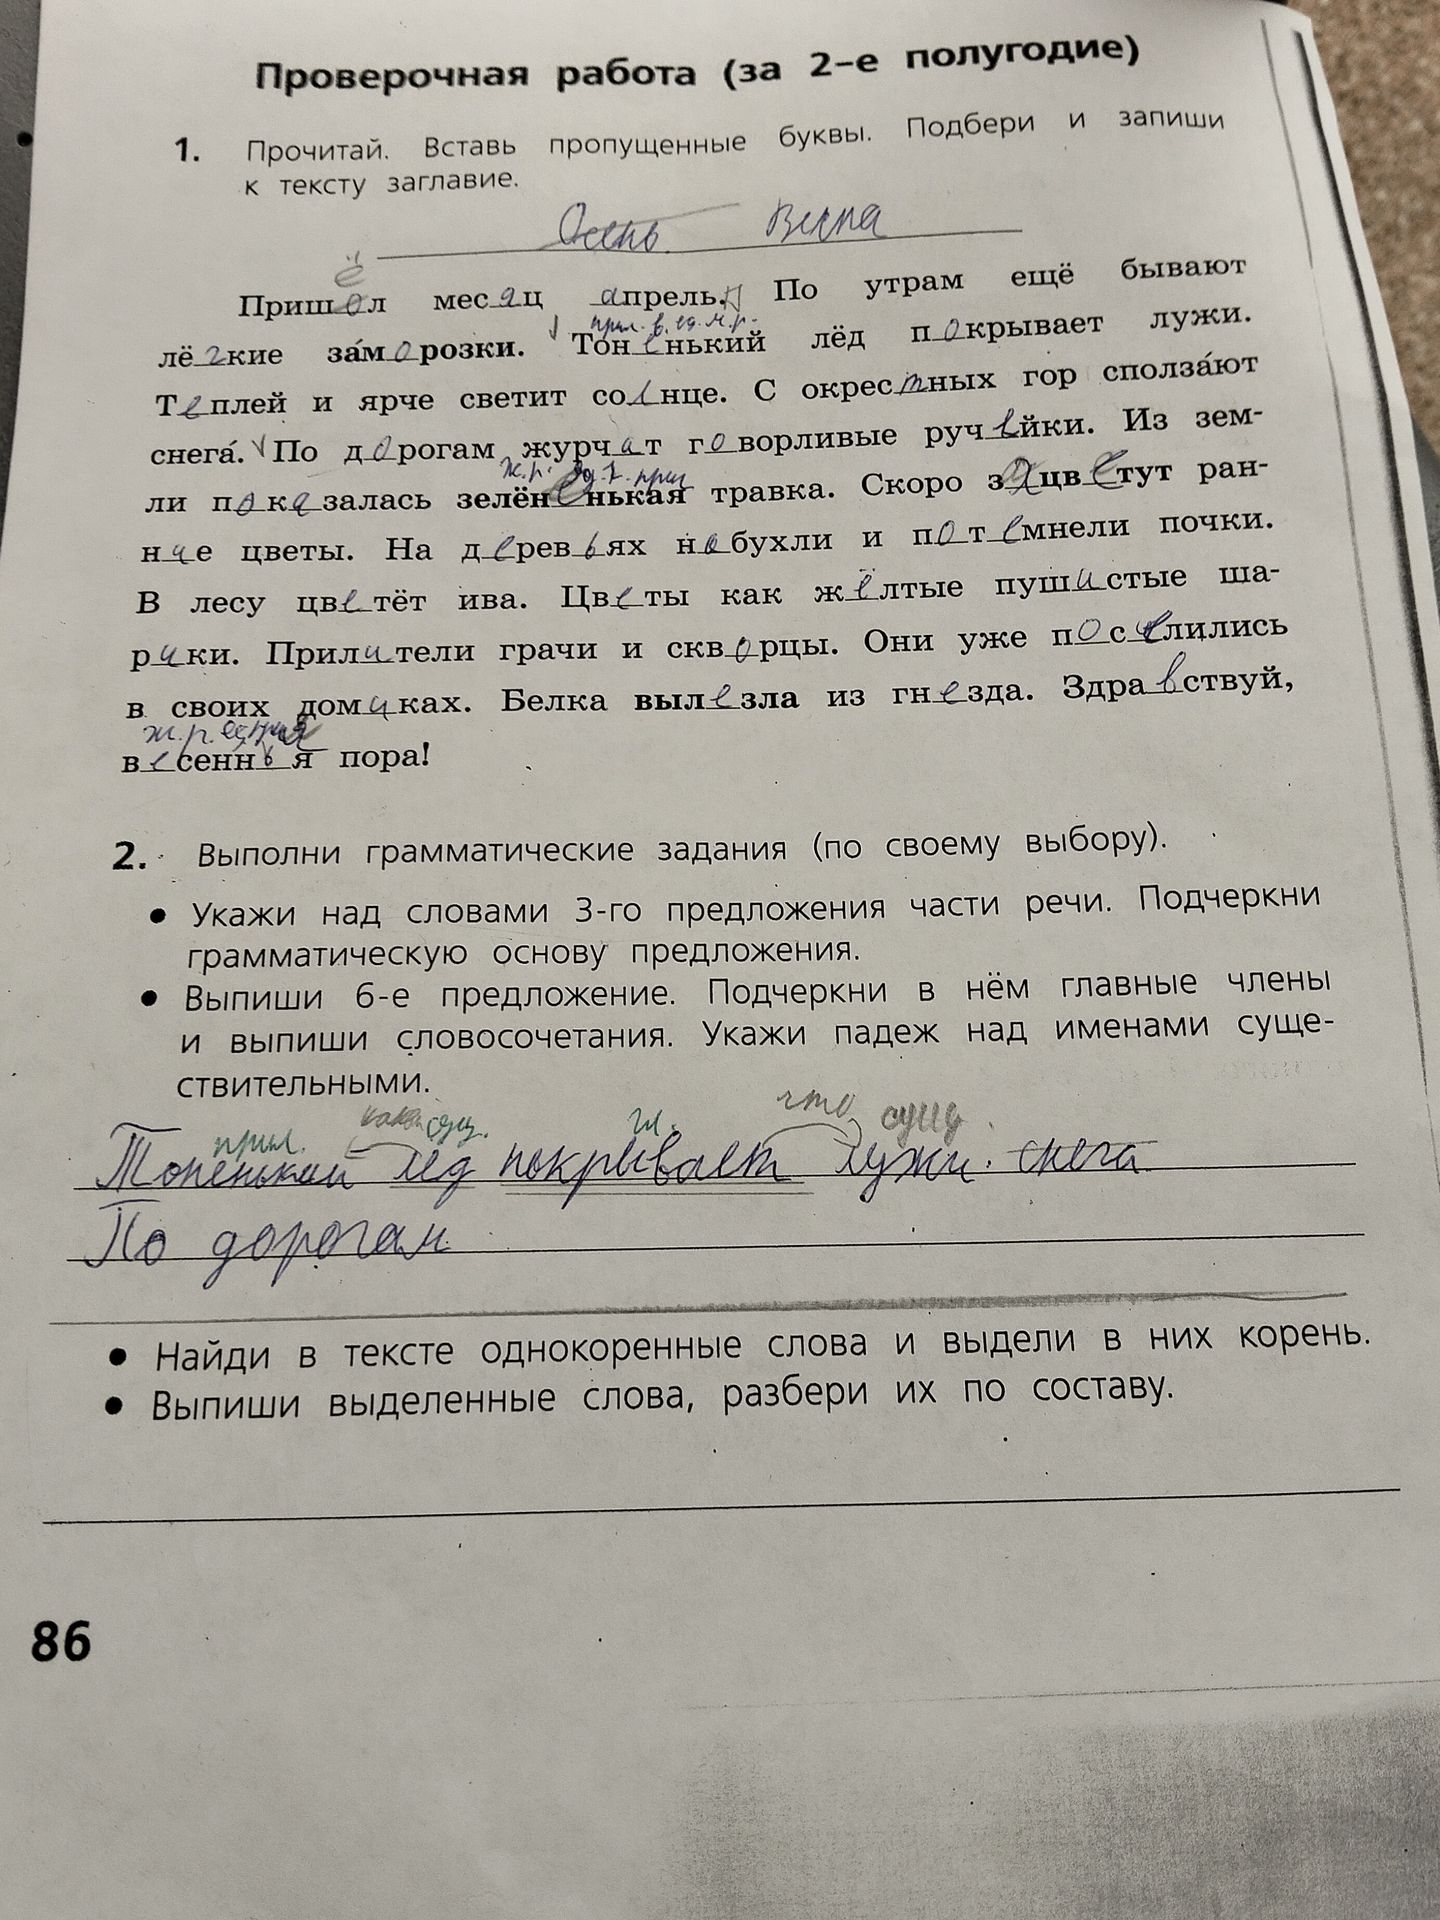 Проверочная работа (за 2-е полугодие)
1. Прочитай. Вставь пропущенные буквы. Подбери и запиши
к тексту заглавие.
Осень Весна
ё
Пришол месяц апрель. По утрам ещё бывают
прил. в. ед. м.р.
лёгкие за́морозки. Тоненький лёд покрывает лужи.
Теплей и ярче светит солнце. С окрестных гор сполза́ют
снега́. По дорогам журчат говорливые ручейки. Из зем-
ж.р. прил
ли показалась зелёненькая травка. Скоро зацветут ран-
ние цветы. На деревьях набухли и потемнели почки.
В лесу цветёт ива. Цветы как жёлтые пушистые ша-
рики. Прилители грачи и скворцы. Они уже поселились
в своих домиках. Белка вылезла из гнезда. Здравствуй,
ж.р. ед
весеннья пора!
2. Выполни грамматические задания (по своему выбору).
• Укажи над словами 3-го предложения части речи. Подчеркни
грамматическую основу предложения.
• Выпиши 6-е предложение. Подчеркни в нём главные члены
и выпиши словосочетания. Укажи падеж над именами суще-
ствительными.
прил. сущ. гл. что сущ.
Тоненький лёд покрывает лужи. снега
По дорогам
• Найди в тексте однокоренные слова и выдели в них корень.
• Выпиши выделенные слова, разбери их по составу.
86